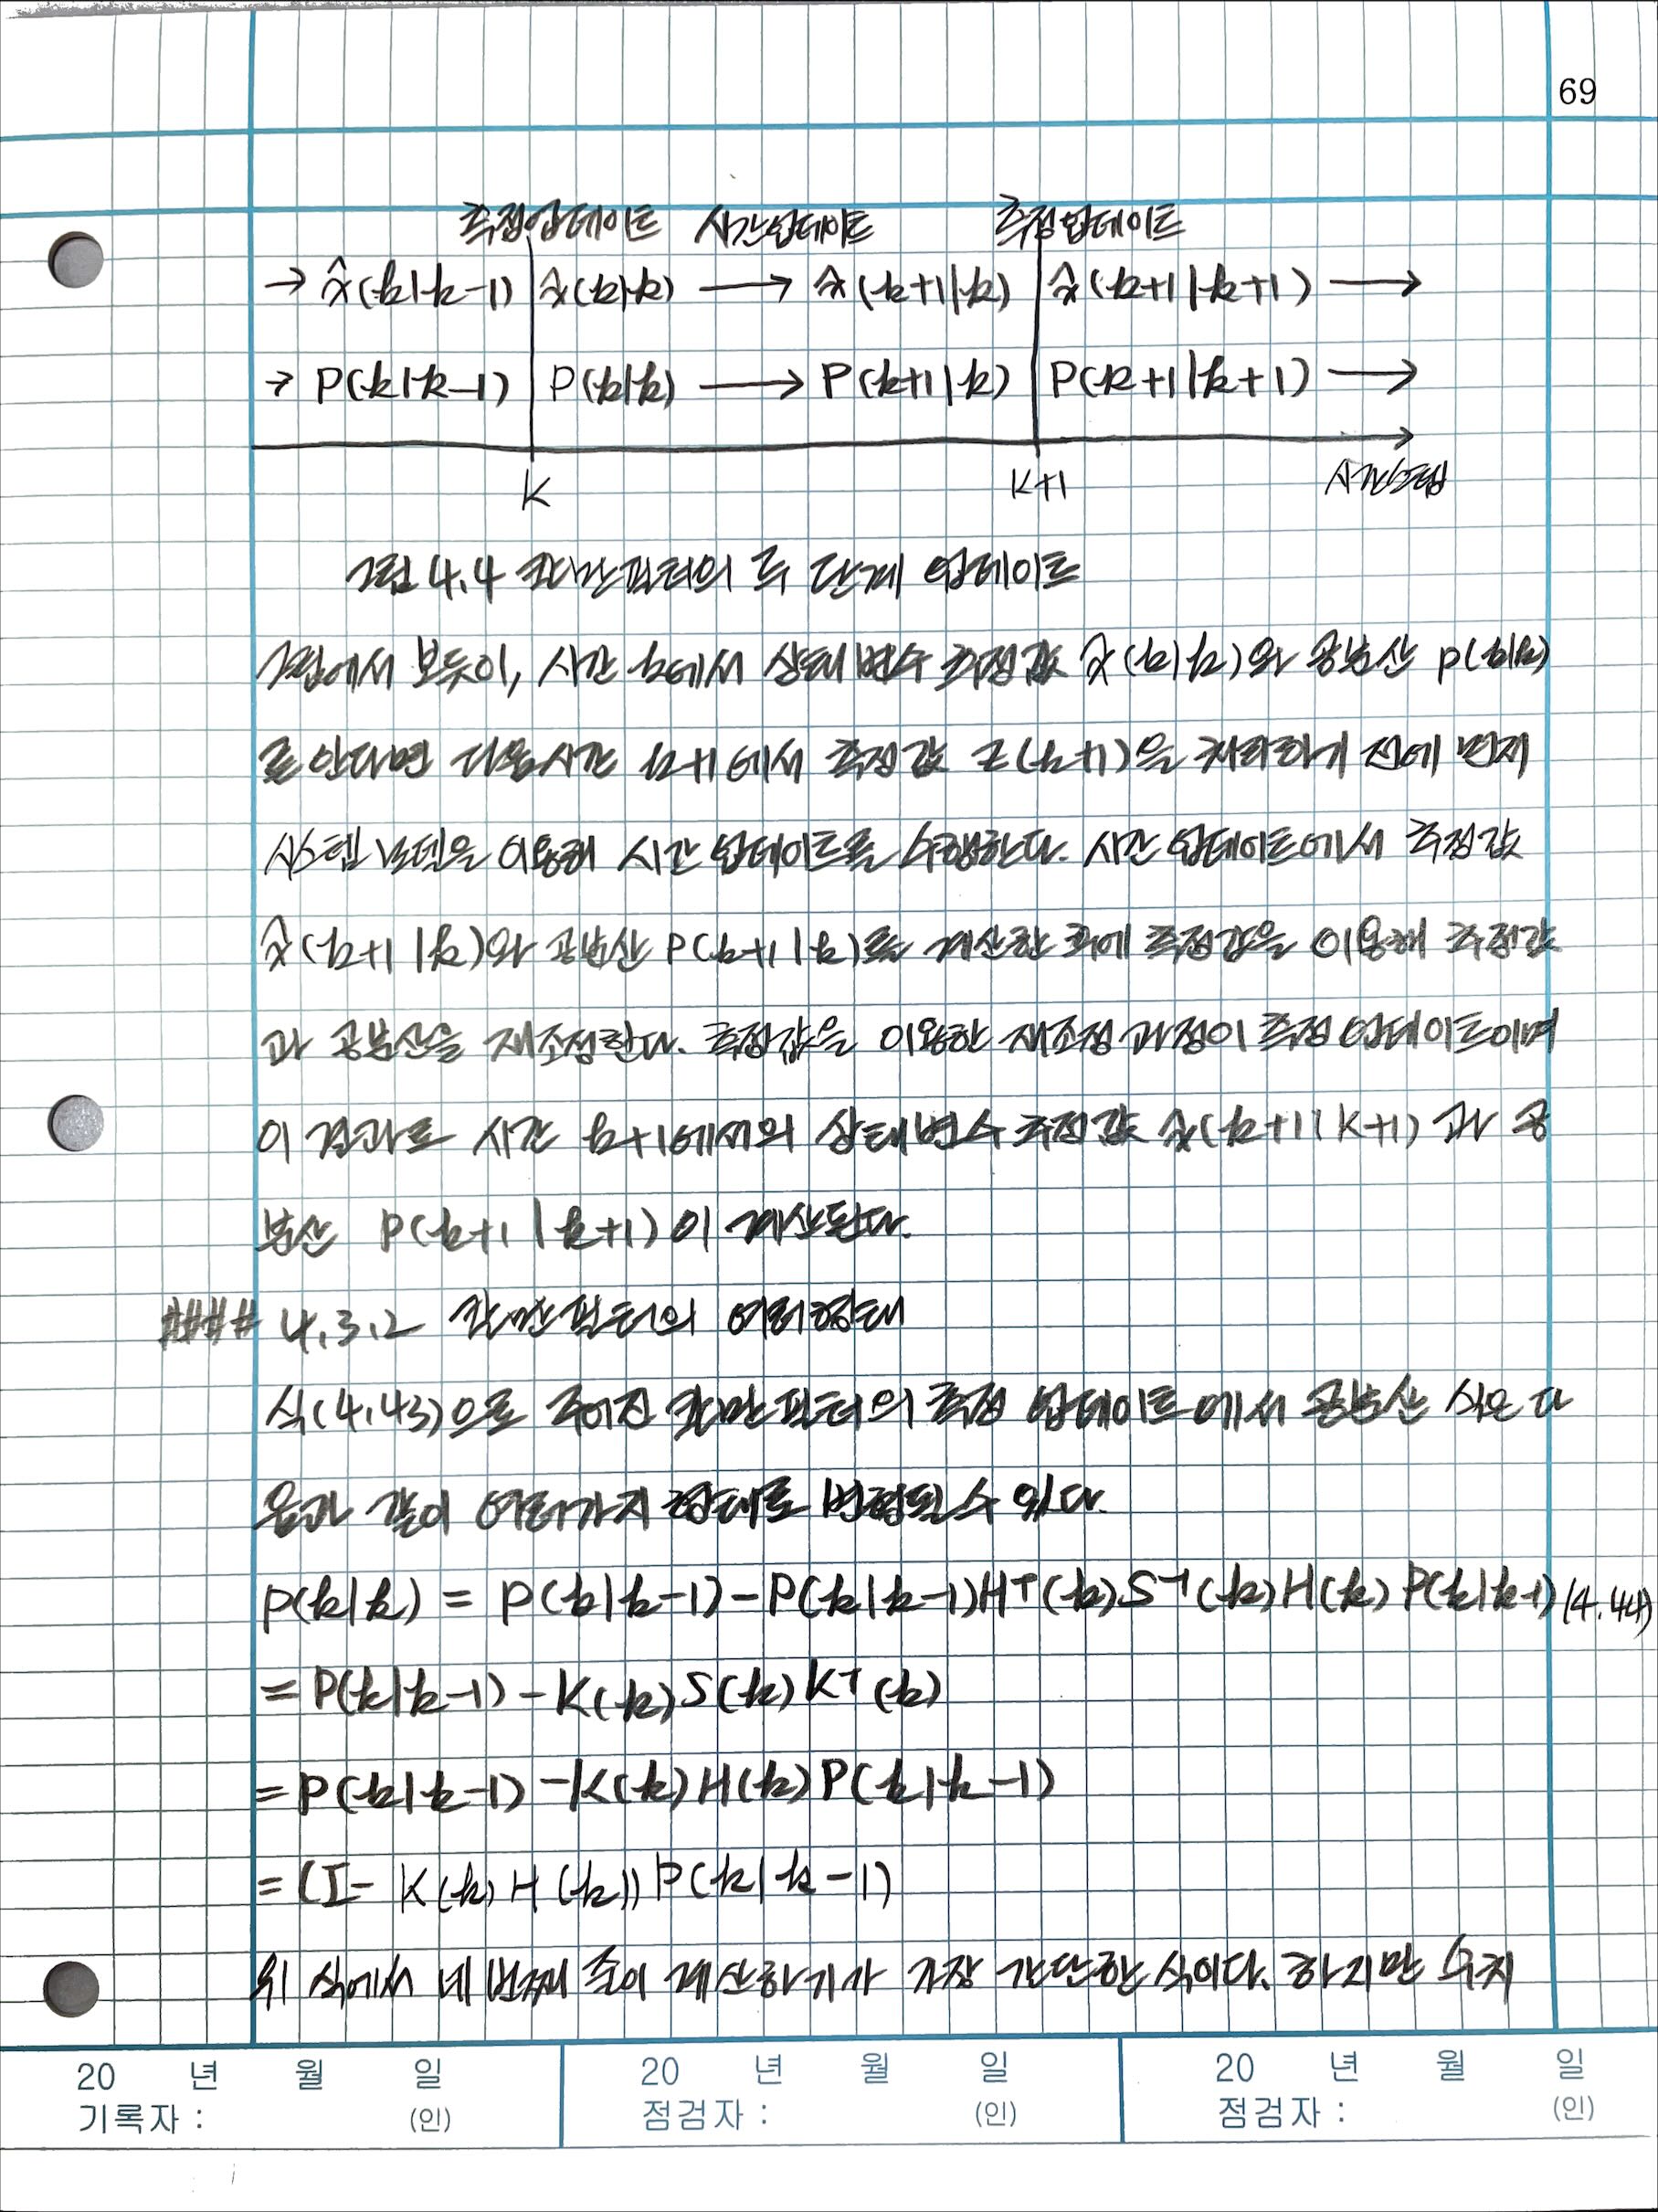 69
측정업데이트 시간업데이트 측정업데이트
→ x̂(k|k-1) x̂(k|k) → x̂(k+1|k) x̂(k+1|k+1) →
→ P(k|k-1) P(k|k) → P(k+1|k) P(k+1|k+1) →
K K+1 시간스텝
그림 4.4 칼만필터의 두 단계 업데이트
그림에서 보듯이, 시간 k에서 상태변수 추정값 x̂(k|k)와 공분산 P(k|k)
를 안다면 다음시간 k+1에서 측정값 z(k+1)을 처리하기 전에 먼저
시스템 모델을 이용해 시간 업데이트를 수행한다. 시간 업데이트에서 추정값
x̂(k+1|k)와 공분산 P(k+1|k)를 계산한 후에 측정값을 이용해 추정값
과 공분산을 재조정한다. 측정값을 이용한 재조정 과정이 측정 업데이트이며
이 결과로 시간 k+1에서의 상태변수 추정값 x̂(k+1|K+1)과 공
분산 P(k+1|k+1)이 계산된다.
#### 4.3.2 칼만필터의 여러형태
식(4.43)으로 주어진 칼만필터의 측정 업데이트에서 공분산 식은 다
음과 같이 여러가지 형태로 변형될 수 있다.
P(k|k) = P(k|k-1)-P(k|k-1)Hᵀ(k)S⁻¹(k)H(k)P(k|k-1) (4.44)
= P(k|k-1) - K(k)S(k)Kᵀ(k)
= P(k|k-1) - K(k)H(k)P(k|k-1)
= (I- K(k)H(k))P(k|k-1)
위 식에서 네 번째 줄이 계산하기가 가장 간단한 식이다. 하지만 수치
20 년 월 일 20 년 월 일 20 년 월 일
기록자 : (인) 점검자 : (인) 점검자 : (인)